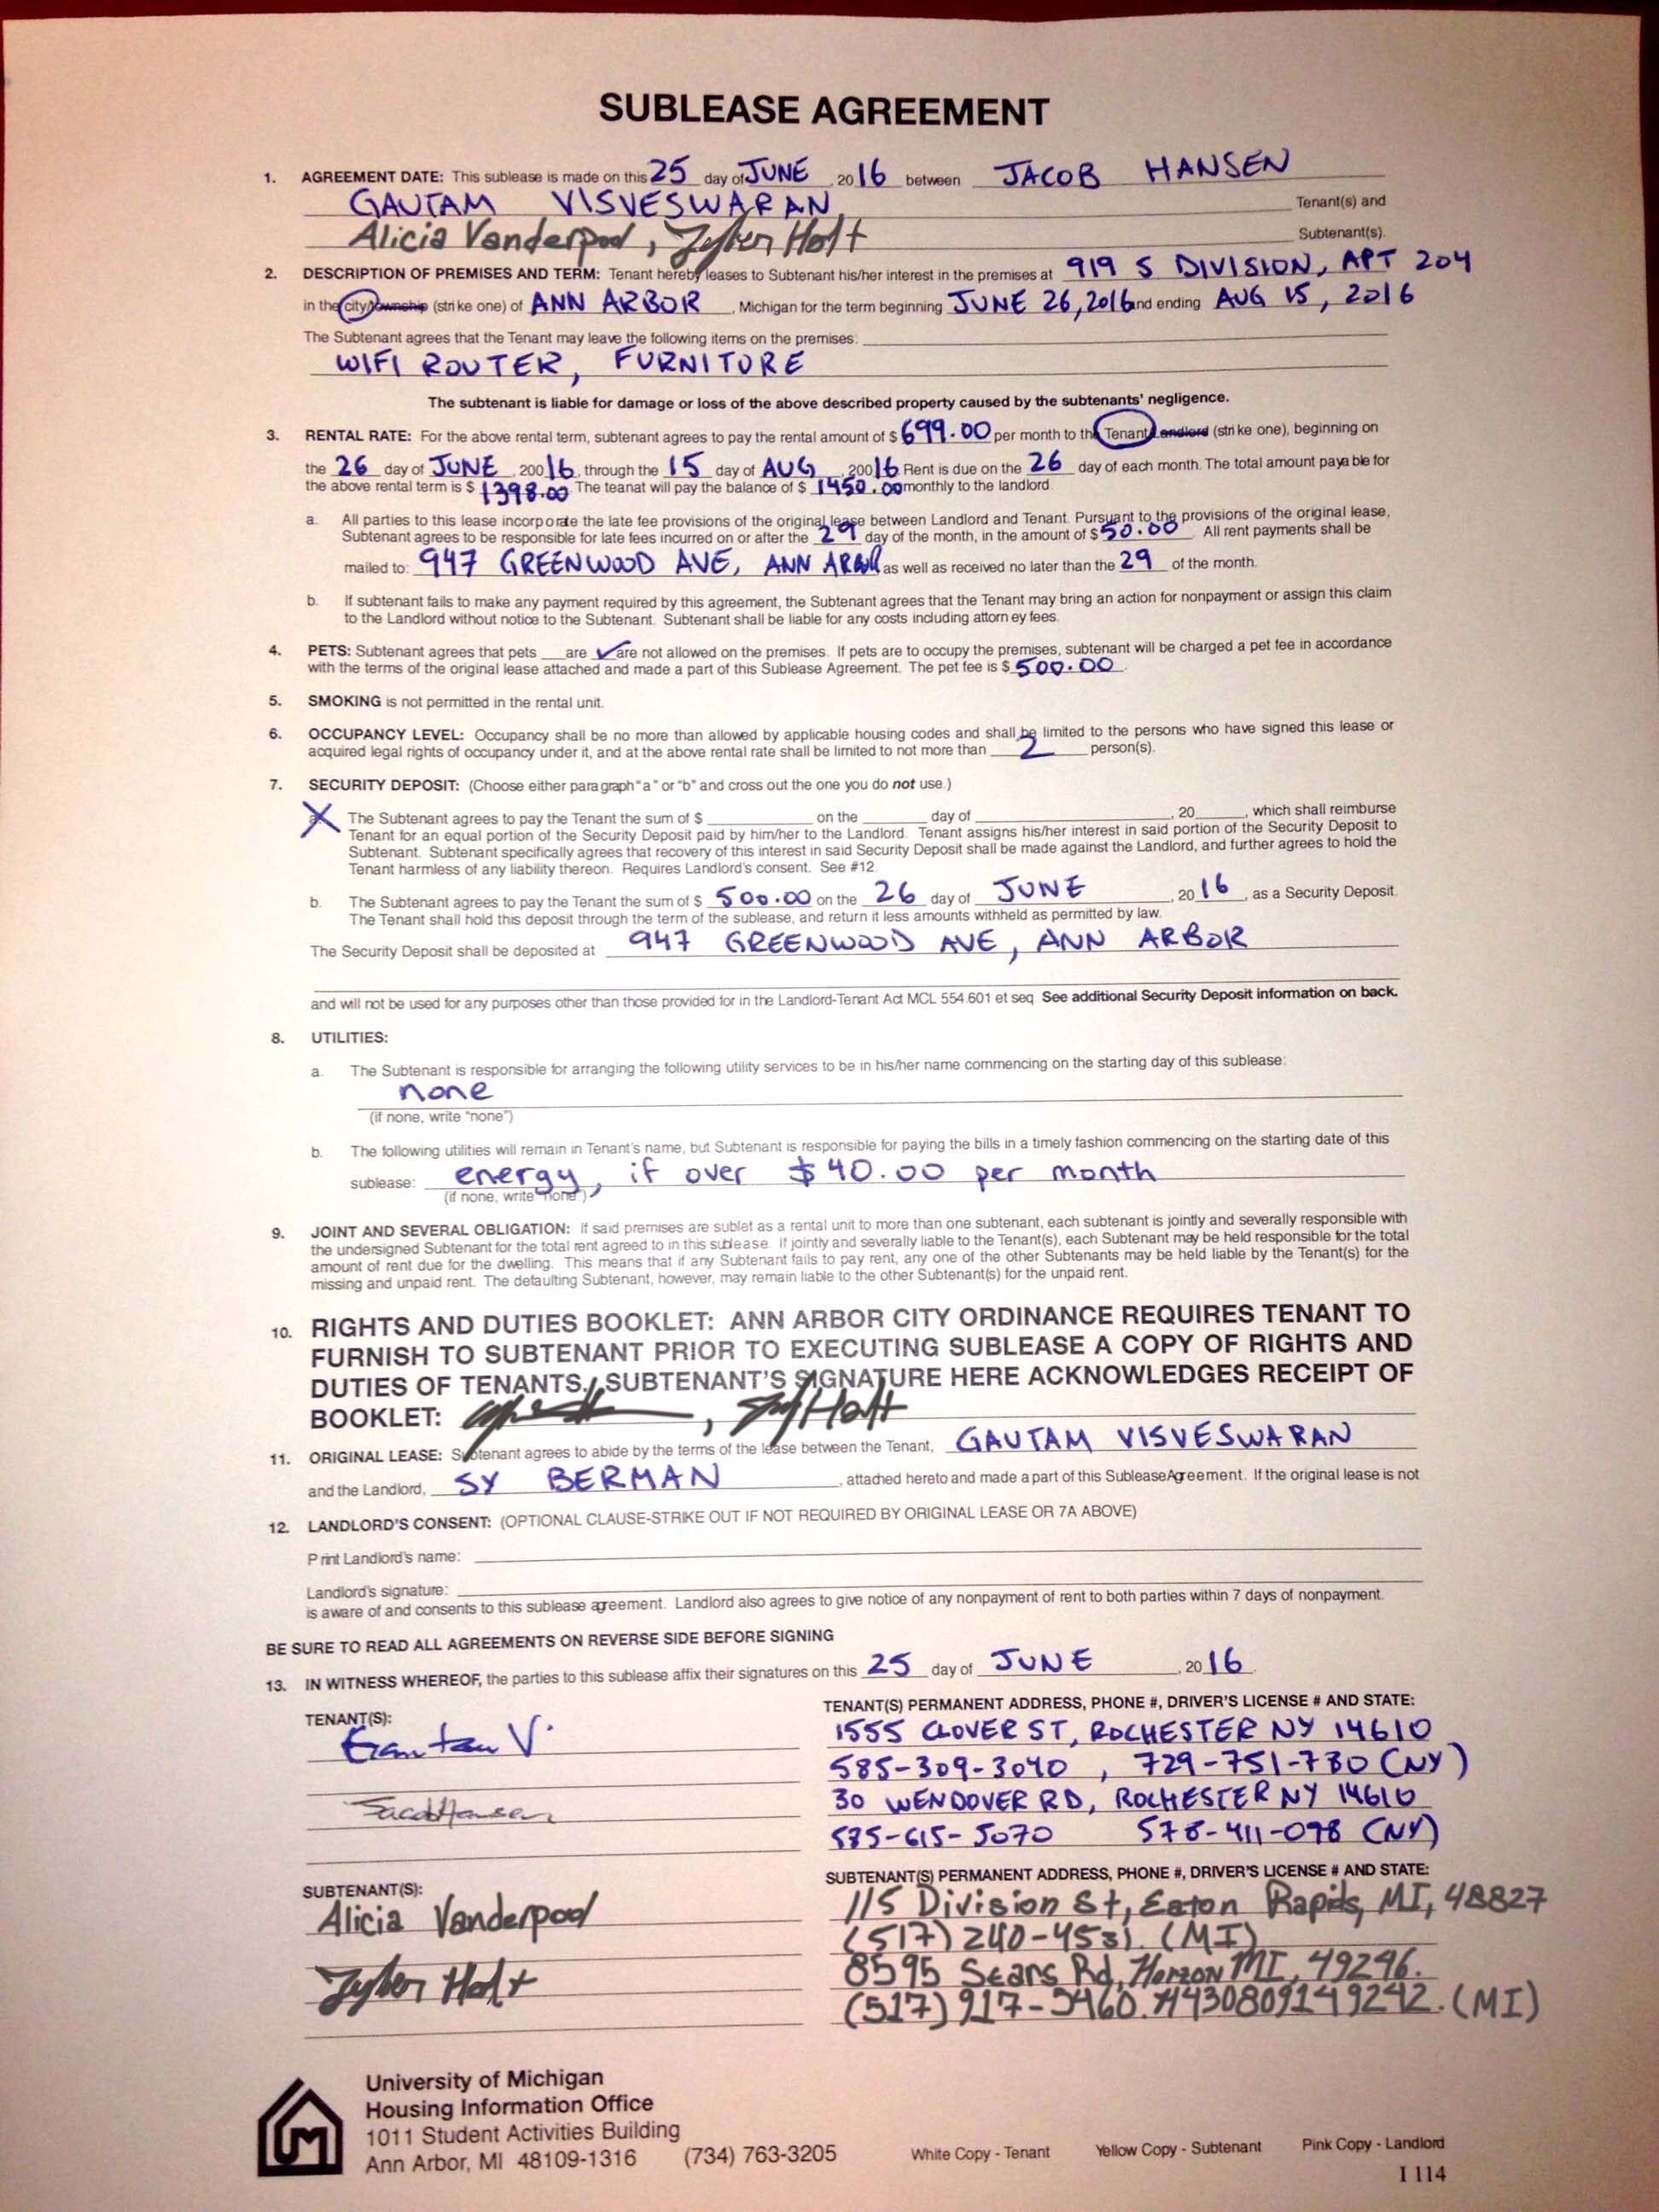 SUBLEASE AGREEMENT
1. AGREEMENT DATE: This sublease is made on this 25 day of JUNE, 2016 between JACOB HANSEN
GAUTAM VISVESWARAN Tenant(s) and
Alicia Vanderpool, Tyler Holt Subtenant(s).
2. DESCRIPTION OF PREMISES AND TERM: Tenant hereby leases to Subtenant his/her interest in the premises at 919 S DIVISION, APT 204
in the city/township (strike one) of ANN ARBOR, Michigan for the term beginning JUNE 26, 2016 and ending AUG 15, 2016
The Subtenant agrees that the Tenant may leave the following items on the premises:
WIFI ROUTER, FURNITURE
The subtenant is liable for damage or loss of the above described property caused by the subtenants' negligence.
3. RENTAL RATE: For the above rental term, subtenant agrees to pay the rental amount of $ 699.00 per month to the Tenant/Landlord (strike one), beginning on
the 26 day of JUNE, 200 16, through the 15 day of AUG, 200 16. Rent is due on the 26 day of each month. The total amount payable for
the above rental term is $ 1398.00 The teanat will pay the balance of $ 1450.00 monthly to the landlord.
a. All parties to this lease incorporate the late fee provisions of the original lease between Landlord and Tenant. Pursuant to the provisions of the original lease,
Subtenant agrees to be responsible for late fees incurred on or after the 29 day of the month, in the amount of $ 50.00. All rent payments shall be
mailed to: 947 GREENWOOD AVE, ANN ARBOR as well as received no later than the 29 of the month.
b. If subtenant fails to make any payment required by this agreement, the Subtenant agrees that the Tenant may bring an action for nonpayment or assign this claim
to the Landlord without notice to the Subtenant. Subtenant shall be liable for any costs including attorney fees.
4. PETS: Subtenant agrees that pets ___are ✓are not allowed on the premises. If pets are to occupy the premises, subtenant will be charged a pet fee in accordance
with the terms of the original lease attached and made a part of this Sublease Agreement. The pet fee is $ 500.00.
5. SMOKING is not permitted in the rental unit.
6. OCCUPANCY LEVEL: Occupancy shall be no more than allowed by applicable housing codes and shall be limited to the persons who have signed this lease or
acquired legal rights of occupancy under it, and at the above rental rate shall be limited to not more than 2 person(s).
7. SECURITY DEPOSIT: (Choose either paragraph "a" or "b" and cross out the one you do not use.)
a. The Subtenant agrees to pay the Tenant the sum of $ ____ on the ____ day of ____, 20____, which shall reimburse
Tenant for an equal portion of the Security Deposit paid by him/her to the Landlord. Tenant assigns his/her interest in said portion of the Security Deposit to
Subtenant. Subtenant specifically agrees that recovery of this interest in said Security Deposit shall be made against the Landlord, and further agrees to hold the
Tenant harmless of any liability thereon. Requires Landlord's consent. See #12.
b. The Subtenant agrees to pay the Tenant the sum of $ 500.00 on the 26 day of JUNE, 2016, as a Security Deposit.
The Tenant shall hold this deposit through the term of the sublease, and return it less amounts withheld as permitted by law.
The Security Deposit shall be deposited at 947 GREENWOOD AVE, ANN ARBOR
and will not be used for any purposes other than those provided for in the Landlord-Tenant Act MCL 554.601 et seq See additional Security Deposit information on back.
8. UTILITIES:
a. The Subtenant is responsible for arranging the following utility services to be in his/her name commencing on the starting day of this sublease:
none
(if none, write "none")
b. The following utilities will remain in Tenant's name, but Subtenant is responsible for paying the bills in a timely fashion commencing on the starting date of this
sublease: energy, if over $40.00 per month
(if none, write "none")
9. JOINT AND SEVERAL OBLIGATION: If said premises are sublet as a rental unit to more than one subtenant, each subtenant is jointly and severally responsible with
the undersigned Subtenant for the total rent agreed to in this sublease. If jointly and severally liable to the Tenant(s), each Subtenant may be held responsible for the total
amount of rent due for the dwelling. This means that if any Subtenant fails to pay rent, any one of the other Subtenants may be held liable by the Tenant(s) for the
missing and unpaid rent. The defaulting Subtenant, however, may remain liable to the other Subtenant(s) for the unpaid rent.
10. RIGHTS AND DUTIES BOOKLET: ANN ARBOR CITY ORDINANCE REQUIRES TENANT TO
FURNISH TO SUBTENANT PRIOR TO EXECUTING SUBLEASE A COPY OF RIGHTS AND
DUTIES OF TENANTS. SUBTENANT'S SIGNATURE HERE ACKNOWLEDGES RECEIPT OF
BOOKLET: , Holt
11. ORIGINAL LEASE: Subtenant agrees to abide by the terms of the lease between the Tenant, GAUTAM VISVESWARAN
and the Landlord, SY BERMAN, attached hereto and made a part of this SubleaseAgreement. If the original lease is not
12. LANDLORD'S CONSENT: (OPTIONAL CLAUSE-STRIKE OUT IF NOT REQUIRED BY ORIGINAL LEASE OR 7A ABOVE)
Print Landlord's name:
Landlord's signature:
is aware of and consents to this sublease agreement. Landlord also agrees to give notice of any nonpayment of rent to both parties within 7 days of nonpayment.
BE SURE TO READ ALL AGREEMENTS ON REVERSE SIDE BEFORE SIGNING
13. IN WITNESS WHEREOF, the parties to this sublease affix their signatures on this 25 day of JUNE, 2016.
TENANT(S):
Gautam V.
Jacob Hansen
TENANT(S) PERMANENT ADDRESS, PHONE #, DRIVER'S LICENSE # AND STATE:
1555 CLOVER ST, ROCHESTER NY 14610
585-309-3040, 729-751-730 (NY)
30 WENDOVER RD, ROCHESTER NY 14610
585-615-5070 578-411-098 (NY)
SUBTENANT(S):
Alicia Vanderpool
Tyler Holt
SUBTENANT(S) PERMANENT ADDRESS, PHONE #, DRIVER'S LICENSE # AND STATE:
115 Division St, Eaton Rapids, MI, 48827
(517) 240-4531. (MI)
8595 Sears Rd, Horton MI, 49246.
(517) 917-5460. H430809149242. (MI)
University of Michigan
Housing Information Office
1011 Student Activities Building
Ann Arbor, MI 48109-1316 (734) 763-3205
White Copy - Tenant Yellow Copy - Subtenant Pink Copy - Landlord
I 114